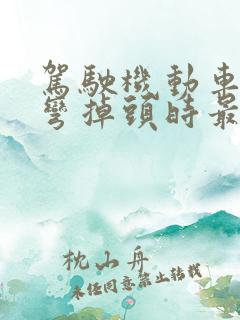 駕駛機動車
彎掉頭時最
枕山舟
未經同意禁止轉載